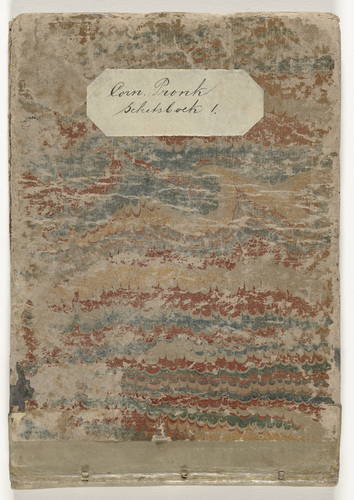 Corn. Pronk
Schetsboek 1.